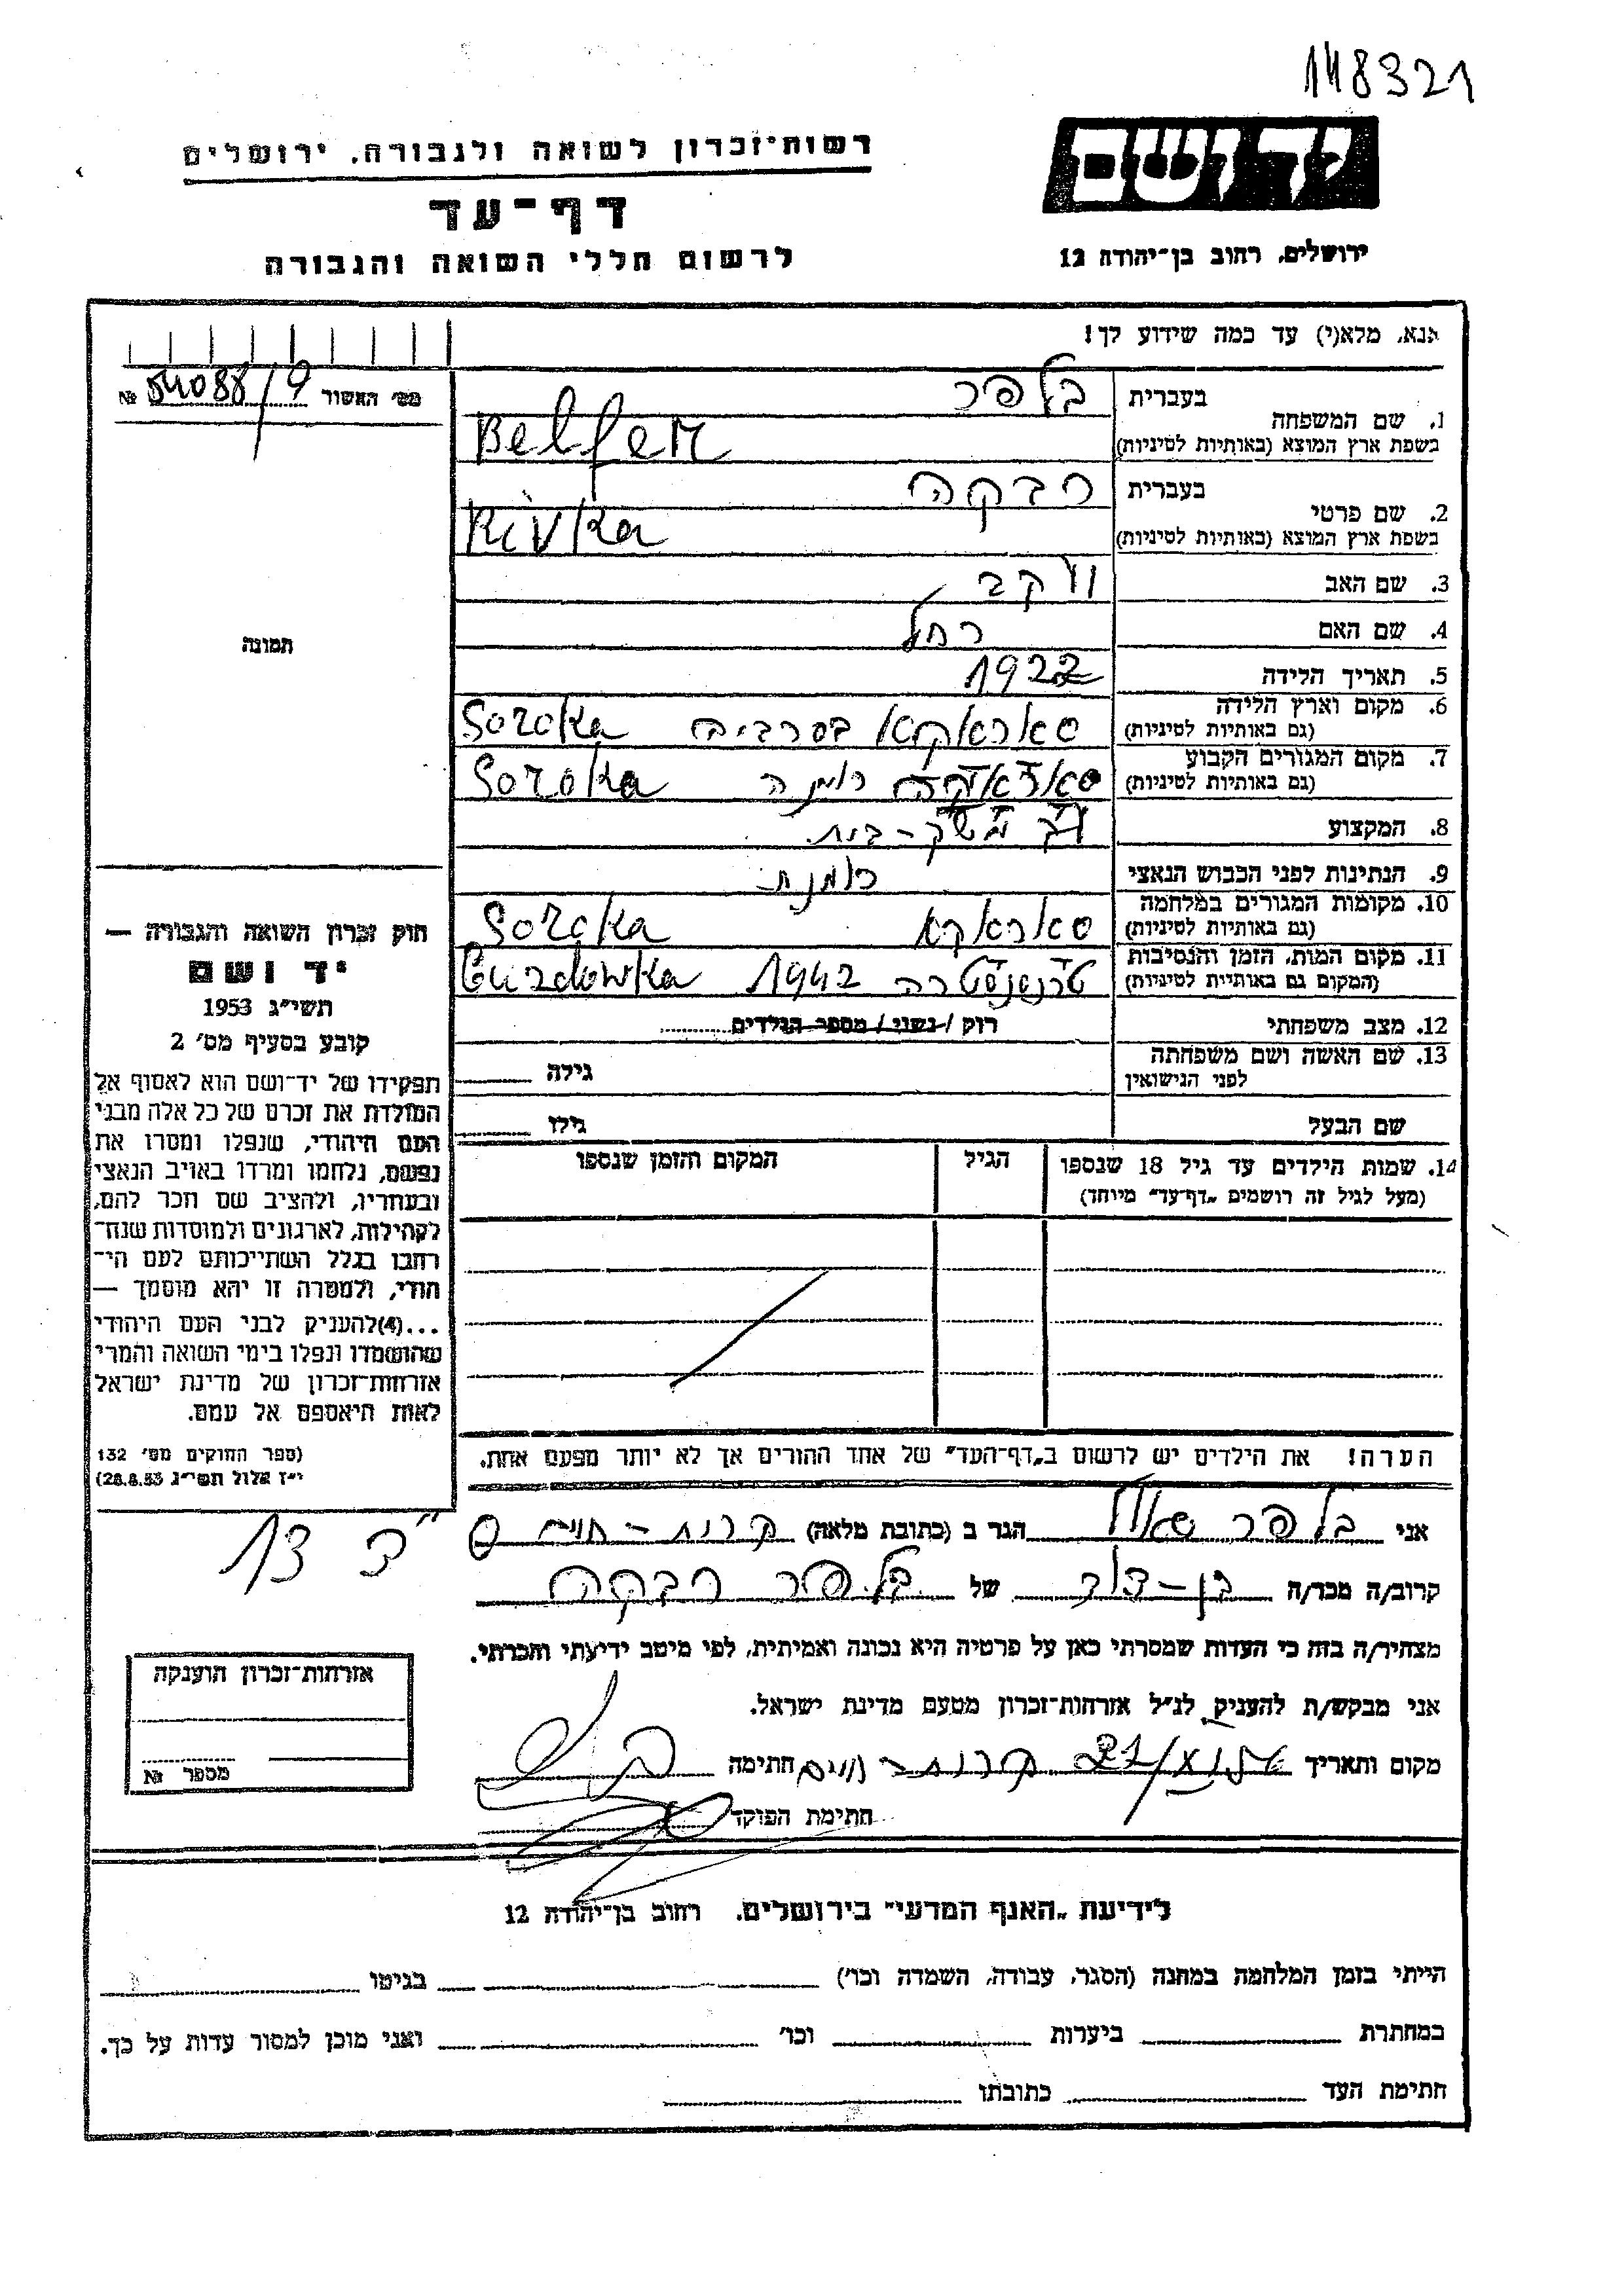 148321
יד ושם
ירושלים, רחוב בן־יהודה 12
רשות־זכרון לשואה ולגבורה, ירושלים
דף־עד
לרשום חללי השואה והגבורה
אנא, מלא(י) עד כמה שידוע לך!
מס׳ האשור № 54088/9
1. שם המשפחה בעברית בלפר
בשפת ארץ המוצא (באותיות לטיניות) Belfer
2. שם פרטי בעברית רבקה
בשפת ארץ המוצא (באותיות לטיניות) Rivka
3. שם האב יעקב
4. שם האם רחל
תמונה
5. תאריך הלידה 1922
6. מקום וארץ הלידה (גם באותיות לטיניות) סאראקא בסרביה Soroka
7. מקום המגורים הקבוע (גם באותיות לטיניות) רומניה Soroka
8. המקצוע משק-בית
9. הנתינות לפני הכבוש הנאצי רומנית
10. מקומות המגורים במלחמה (גם באותיות לטיניות) סאראקא Soroka
11. מקום המות, הזמן והנסיבות (המקום גם באותיית לטיניות) טרנסניסטריה 1942
12. מצב משפחתי רווק / נשוי / מספר הילדים
13. שם האשה ושם משפחתה לפני הנישואין גילה
שם הבעל גילו
14. שמות הילדים עד גיל 18 שנספו הגיל המקום והזמן שנספו
(מעל לגיל זה רושמים „דף־עד״ מיוחד)
חוק זכרון השואה והגבורה —
יד ושם
תשי״ג 1953
קובע בסעיף מס׳ 2
תפקידו של יד־ושם הוא לאסוף אל
המולדת את זכרם של כל אלה מבני
העם היהודי, שנפלו ומסרו את
נפשם, נלחמו ומרדו באויב הנאצי
ובעוזריו, ולהציב שם וזכר להם,
לקהילות, לארגונים ולמוסדות שנח־
רבו בגלל השתייכותם לעם הי־
הודי, ולמטרה זו יהא מוסמך —
...(4)להעניק לבני העם היהודי
שהושמדו ונפלו בימי השואה והמרי
אזרחות־זכרון של מדינת ישראל
לאות היאספם אל עמם.
(ספר החוקים מס׳ 132
י״ז אלול תשי״ג 28.8.53)
הערה! את הילדים יש לרשום ב„דף־העד״ של אחד ההורים אך לא יותר מפעם אחת.
אני בלפר שאול הגר ב (כתובת מלאה) קרית-חיים
קרוב/ה מכר/ה בן-דוד של בלפר רבקה
מצהיר/ה בזה כי העדות שמסרתי כאן על פרטיה היא נכונה ואמיתית, לפי מיטב ידיעתי והכרתי.
אני מבקש/ת להעניק לנ״ל אזרחות־זכרון מטעם מדינת ישראל.
מקום ותאריך קרית-חיים חתימה
חתימת הפוקד
אזרחות־זכרון הוענקה
מספר №
לידיעת „האגף המדעי״ בירושלים. רחוב בן־יהודה 12
הייתי בזמן המלחמה במחנה (הסגר, עבודה, השמדה וכו׳) בגיטו
במחתרת ביערות וכו׳ ואני מוכן למסור עדות על כך.
חתימת העד כתובתו